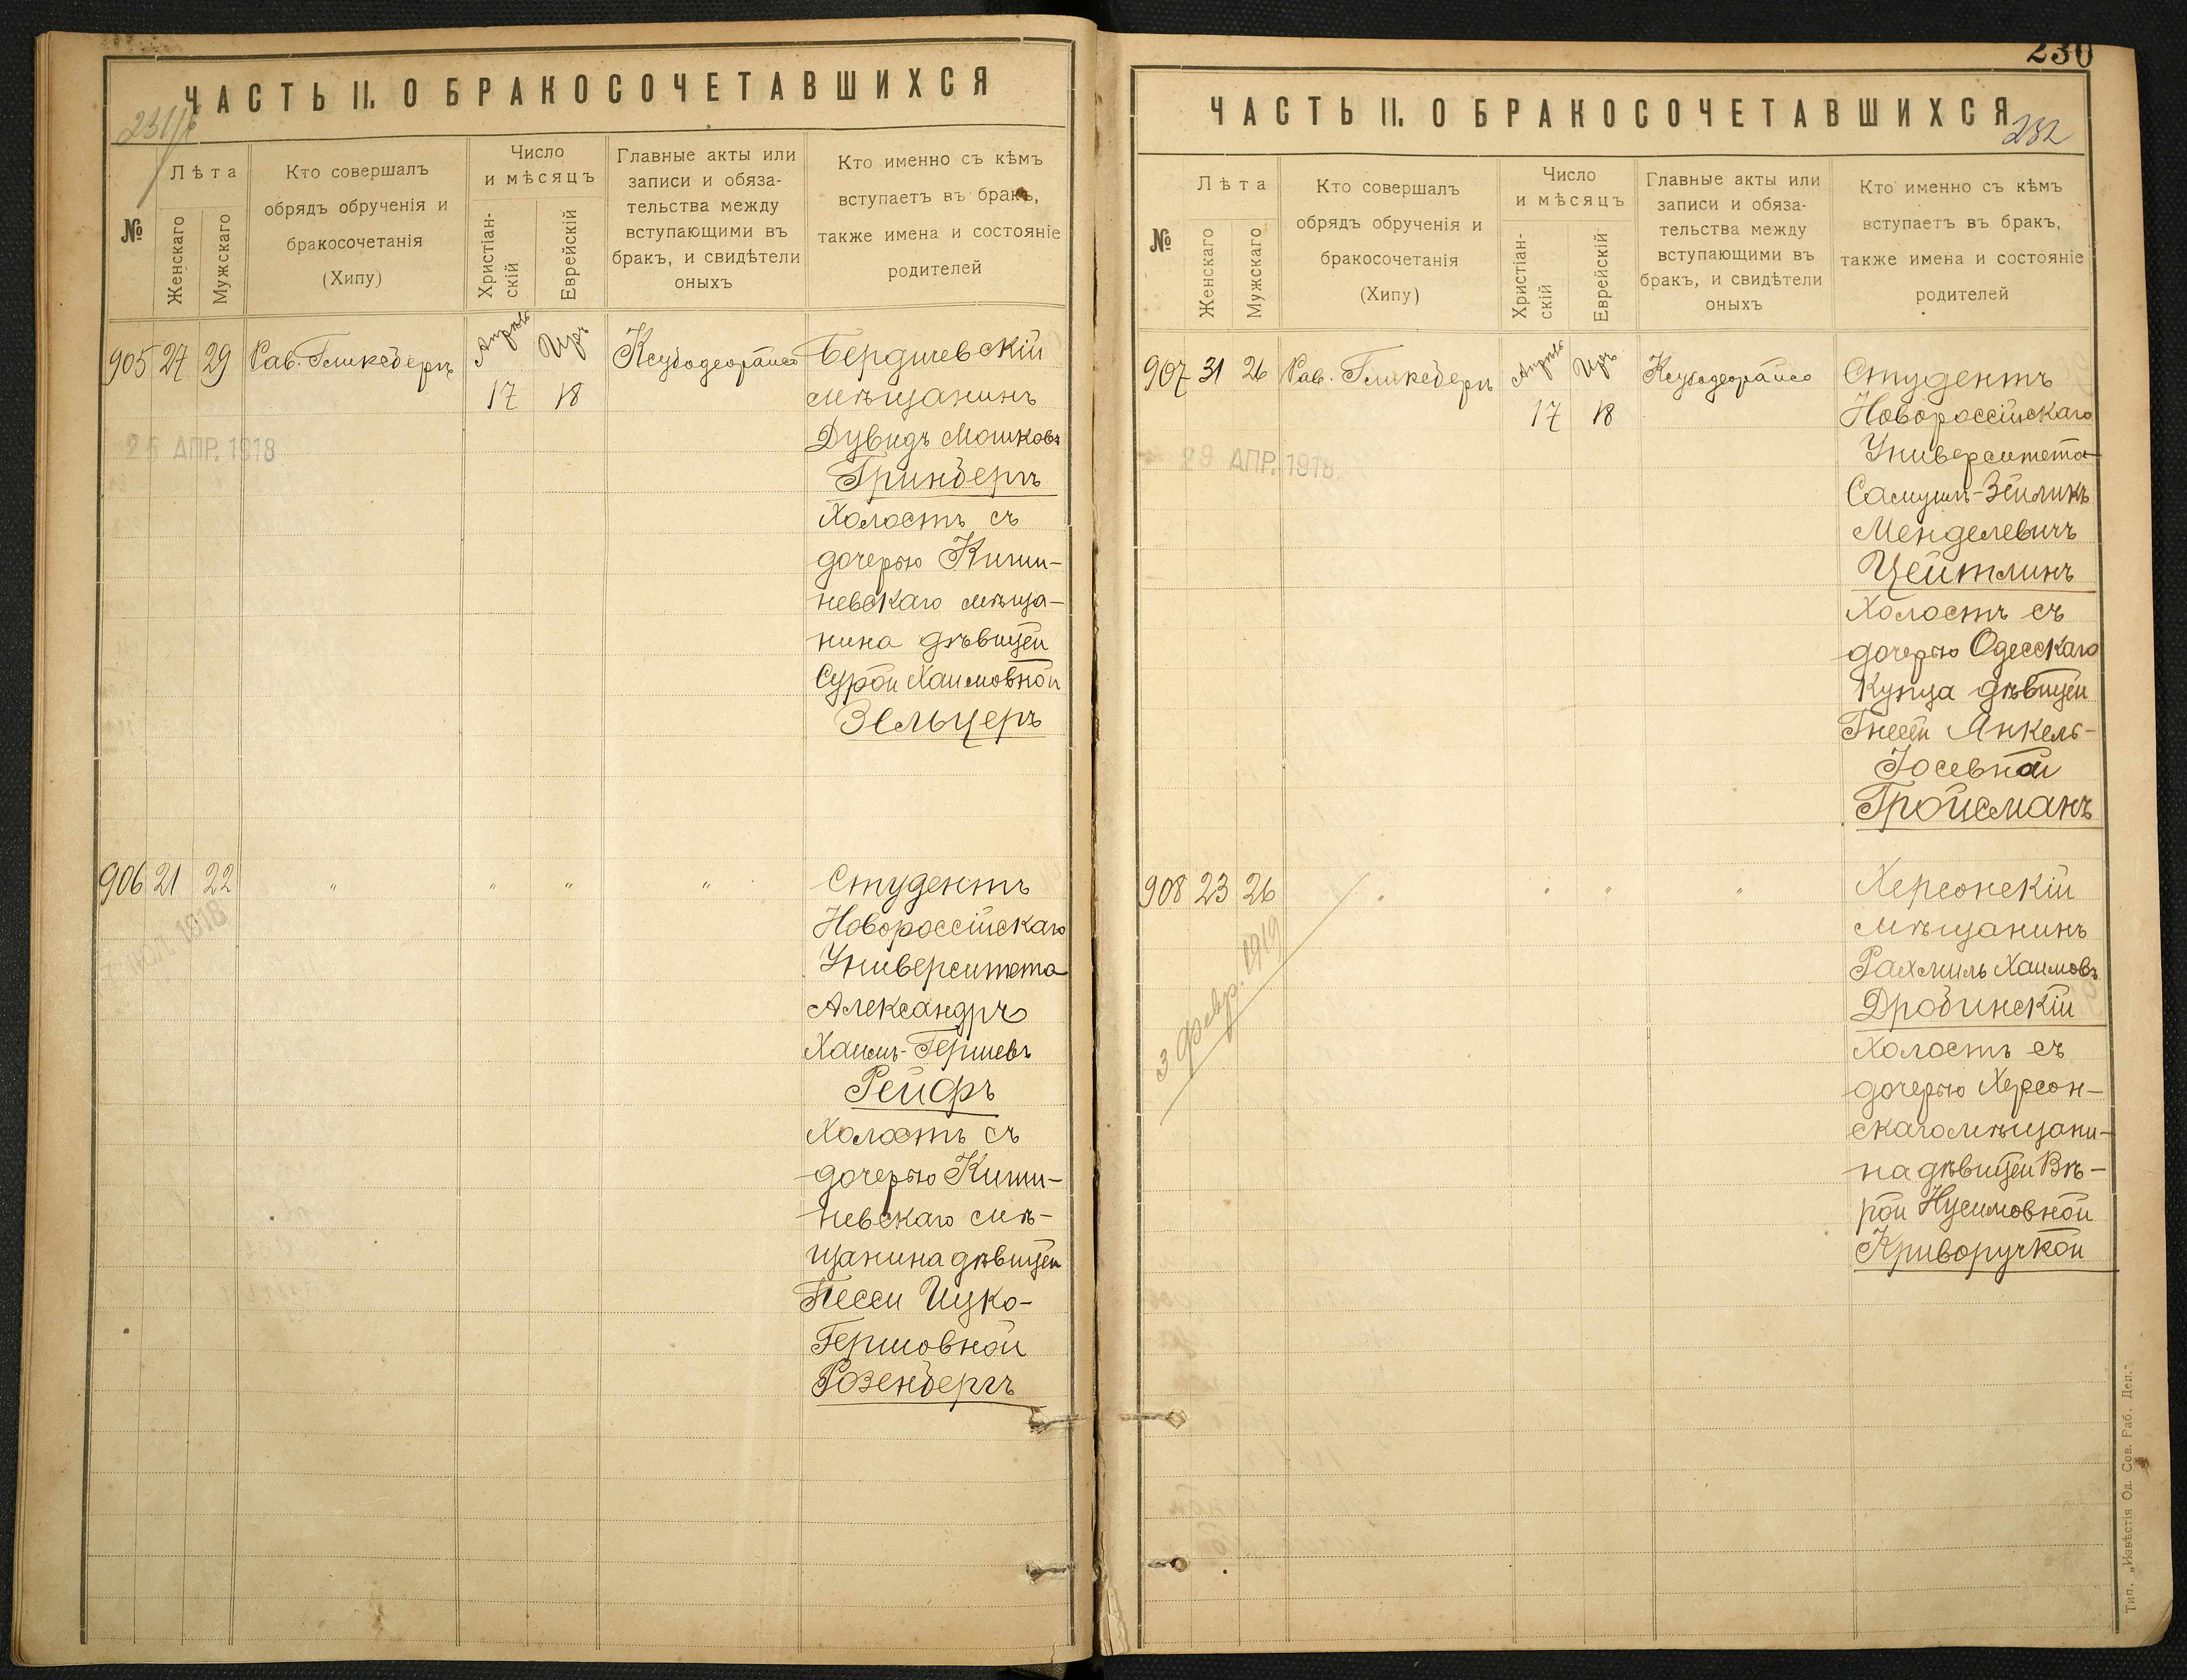 ЧАСТЬ II. О БРАКОСОЧЕТАВШИХСЯ
№
Лѣта
Женскаго
Мужскаго
Кто совершалъ
обрядъ обрученія и
бракосочетанія
(Хипу)
Число
и мѣсяцъ
Христіан-
скій
Еврейскій
Главные акты или
записи и обяза-
тельства между
вступающими въ
бракъ, и свидѣтели
оныхъ
Кто именно съ кѣмъ
вступаетъ въ бракъ,
также имена и состояніе
родителей
905 27 29 Рав. Гликсбергъ Апрѣль Иръ
17 18
Бердичевскій
мѣщанинъ
Дувидъ Мошковъ
Гринбергъ
Холостъ съ
дочерью Киши-
невскаго мѣща-
нина дѣвицей
Сурой Хаимовной
Зельцеръ
25 АПР. 1918
906 21 22 " " " "
Студентъ
Новороссійскаго
Университета
Александръ
Хаимъ-Гершевъ
Рейфъ
Холостъ съ
дочерью Киши-
невскаго мѣ-
щанина дѣвицей
Песси Ицко-
Гершовной
Розенбергъ
1918
230
ЧАСТЬ II. О БРАКОСОЧЕТАВШИХСЯ
232
№
Лѣта
Женскаго
Мужскаго
Кто совершалъ
обрядъ обрученія и
бракосочетанія
(Хипу)
Число
и мѣсяцъ
Христіан-
скій
Еврейскій
Главные акты или
записи и обяза-
тельства между
вступающими въ
бракъ, и свидѣтели
оныхъ
Кто именно съ кѣмъ
вступаетъ въ бракъ,
также имена и состояніе
родителей
907 31 26 Рав. Гликсбергъ Апрѣль Иръ
17 18
Студентъ
Новороссійскаго
Университета
Самуилъ-Зейликъ
Менделевичъ
Цейтлинъ
Холостъ съ
дочерью Одесскаго
Купца дѣвицей
Гнесей Янкель-
Іосевной
Гройсманъ
29 АПР. 1918
908 23 26 " " " "
Херсонскій
мѣщанинъ
Рахмиль Хаимовъ
Дробинскій
Холостъ съ
дочерью Херсон-
скаго мѣщани-
на дѣвицей Вѣ-
рой Нусимовной
Криворучкой
3 февр. 1919
Тип. „Извѣстія Од. Сов. Раб. Деп."